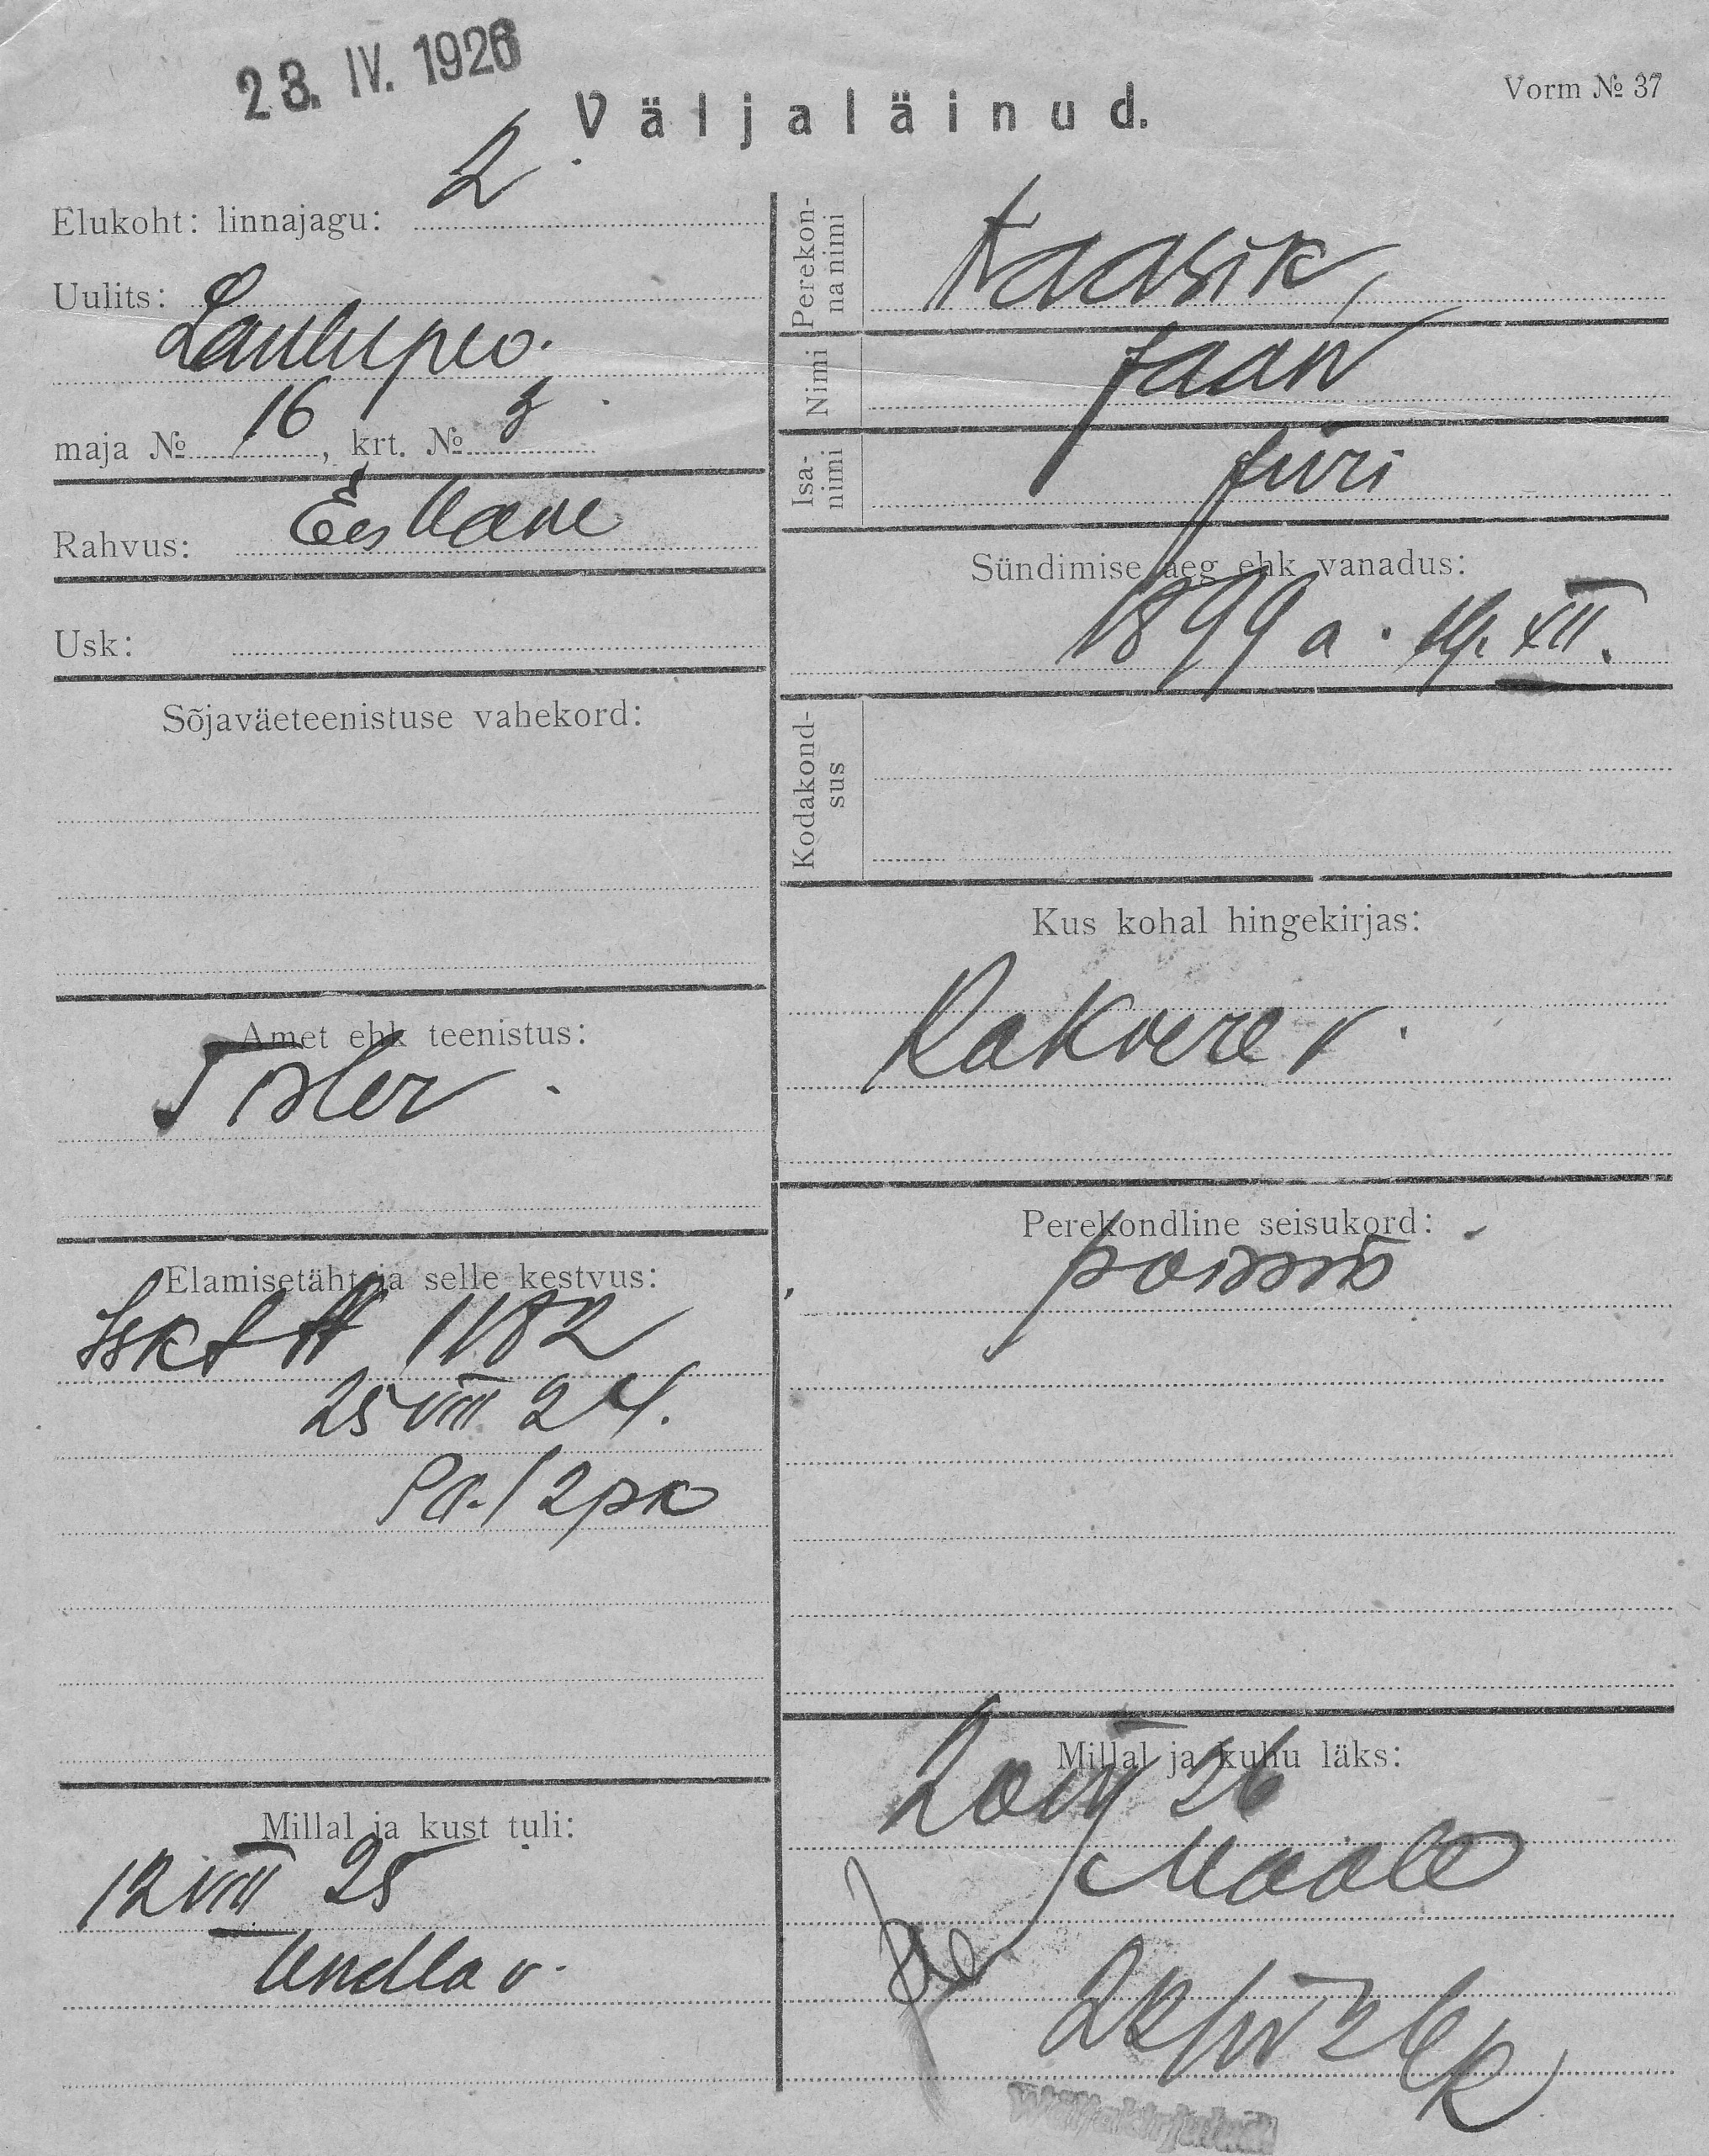 23. IV. 1926
Vorm № 37
Väljaläinud.
Elukoht: linnajagu: 2
Uulits:
Laulupeo.
maja № 16, krt. № 3
Rahvus: Eestlane
Usk:
Sõjaväeteenistuse vahekord:
Amet ehk teenistus:
Tisler
Elamisetäht ja selle kestvus:
Iskt № 1182
25 VIII 24.
12 VIII 25
Millal ja kust tuli:
Undla v.
Perekon-
na nimi
Kaasik,
Nimi Jaan
Isa-
nimi
Jüri
Sündimise aeg ehk vanadus:
1899 a. XII.
Kodakond-
sus
Kus kohal hingekirjas:
Rakvere v.
Perekondline seisukord:
poissm
Millal ja kuhu läks:
20 IV 26
Maale
22/IV 26
Wäljakirjutud